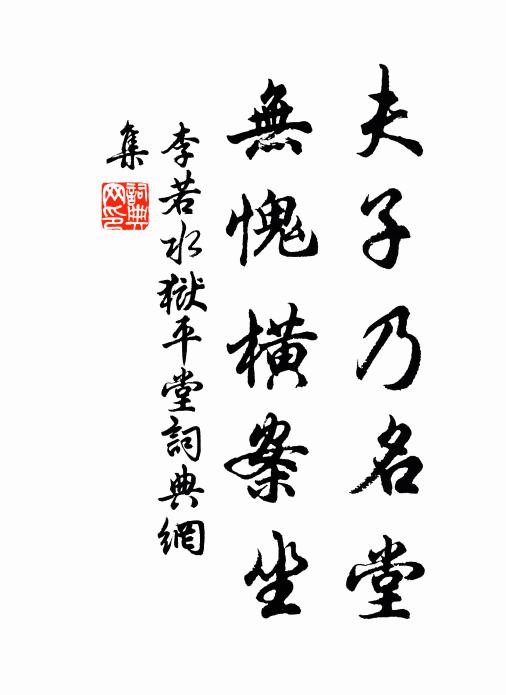 夫子乃名堂
無愧橫案坐
李若水獄平堂詞典網
集
詞典
网印